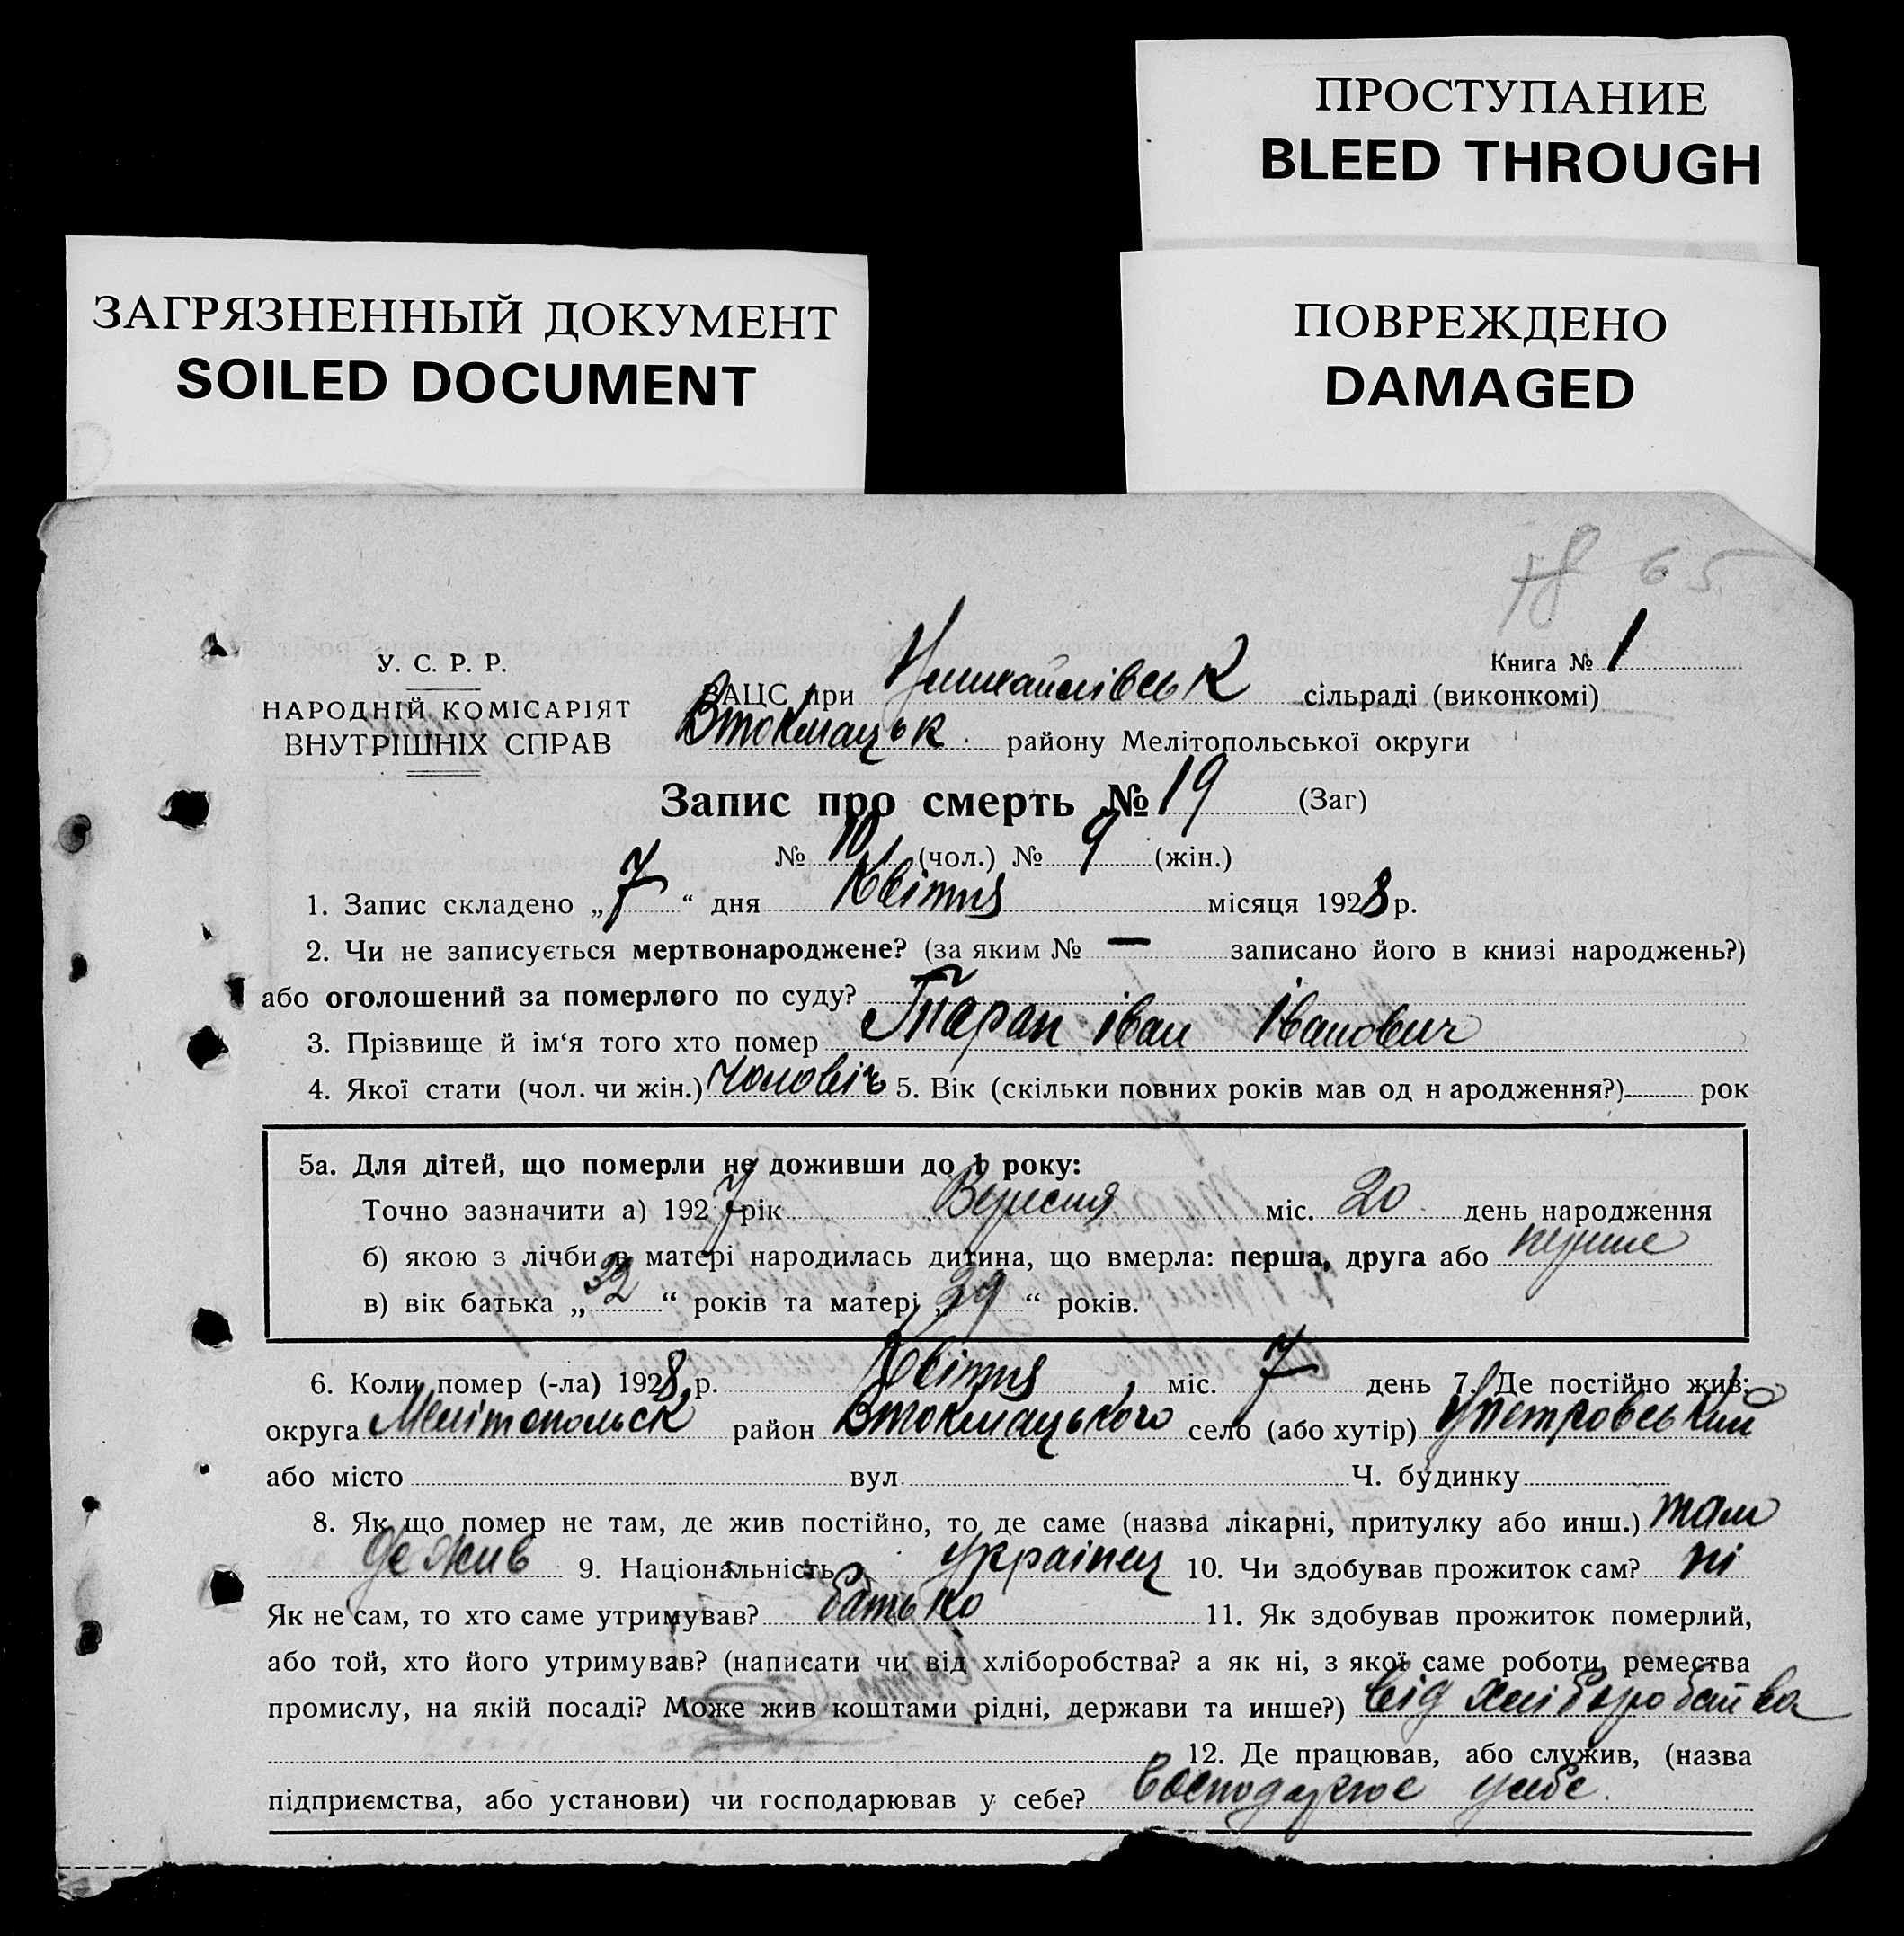 ПРОСТУПАНИЕ
BLEED THROUGH
ЗАГРЯЗНЕННЫЙ ДОКУМЕНТ
SOILED DOCUMENT
ПОВРЕЖДЕНО
DAMAGED
78 65
У. С. Р. Р.
НАРОДНІЙ КОМІСАРІЯТ
ВНУТРІШНІХ СПРАВ
Книга № 1
ЗАЦС при сільраді (виконкомі)
Втокмацьк району Мелітопольської округи
Запис про смерть № 19 (Заг)
№ 10 (чол.) № 9 (жін.)
1. Запис складено „7“ дня Квітня місяця 1928 р.
2. Чи не записується мертвонароджене? (за яким № — записано його в книзі народжень?)
або оголошений за померлого по суду?
3. Прізвище й ім‘я того хто помер Таран іван Іванович
4. Якої стати (чол. чи жін.) Чоловіч 5. Вік (скільки повних років мав од н ародження?) рок
5а. Для дітей, що померли не доживши до 1 року:
Точно зазначити а) 1927 рік Вересня міс. 20 день народження
б) якою з лічби в матері народилась дитина, що вмерла: перша, друга або перше
в) вік батька „32“ років та матері „29“ років.
6. Коли помер (-ла) 1928 р. Квітня міс. 7 день 7. Де постійно жив:
округа Мелітопольск район Втокмацького село (або хутір)
або місто вул. Ч. будинку
8. Як що помер не там, де жив постійно, то де саме (назва лікарні, притулку або инш.) там
де жив 9. Національність українец 10. Чи здобував прожиток сам? ні
Як не сам, то хто саме утримував? батько 11. Як здобував прожиток померлий,
або той, хто його утримував? (написати чи від хліборобства? а як ні, з якої саме роботи, ремества
промислу, на якій посаді? Може жив коштами рідні, держави та инше?) від хліборобства
12. Де працював, або служив, (назва
підприємства, або установи) чи господарював у себе? усебе.